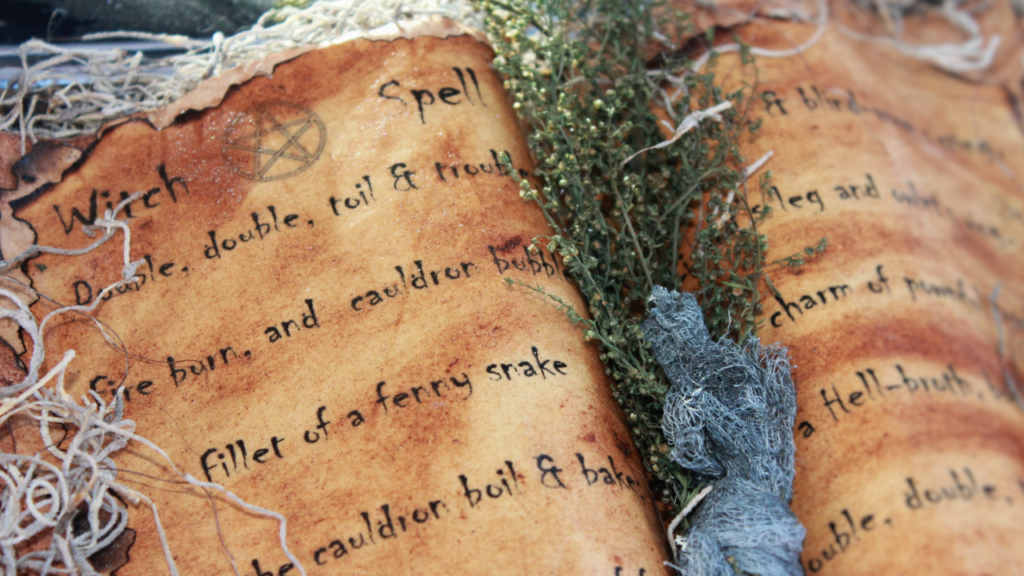 Witch Spell
Double, double, toil & trouble
fire burn, and cauldron bubble
fillet of a fenny snake
the cauldron boil & bake,
& blind
leg and
charm of
a Hell-broth,
double,
double,